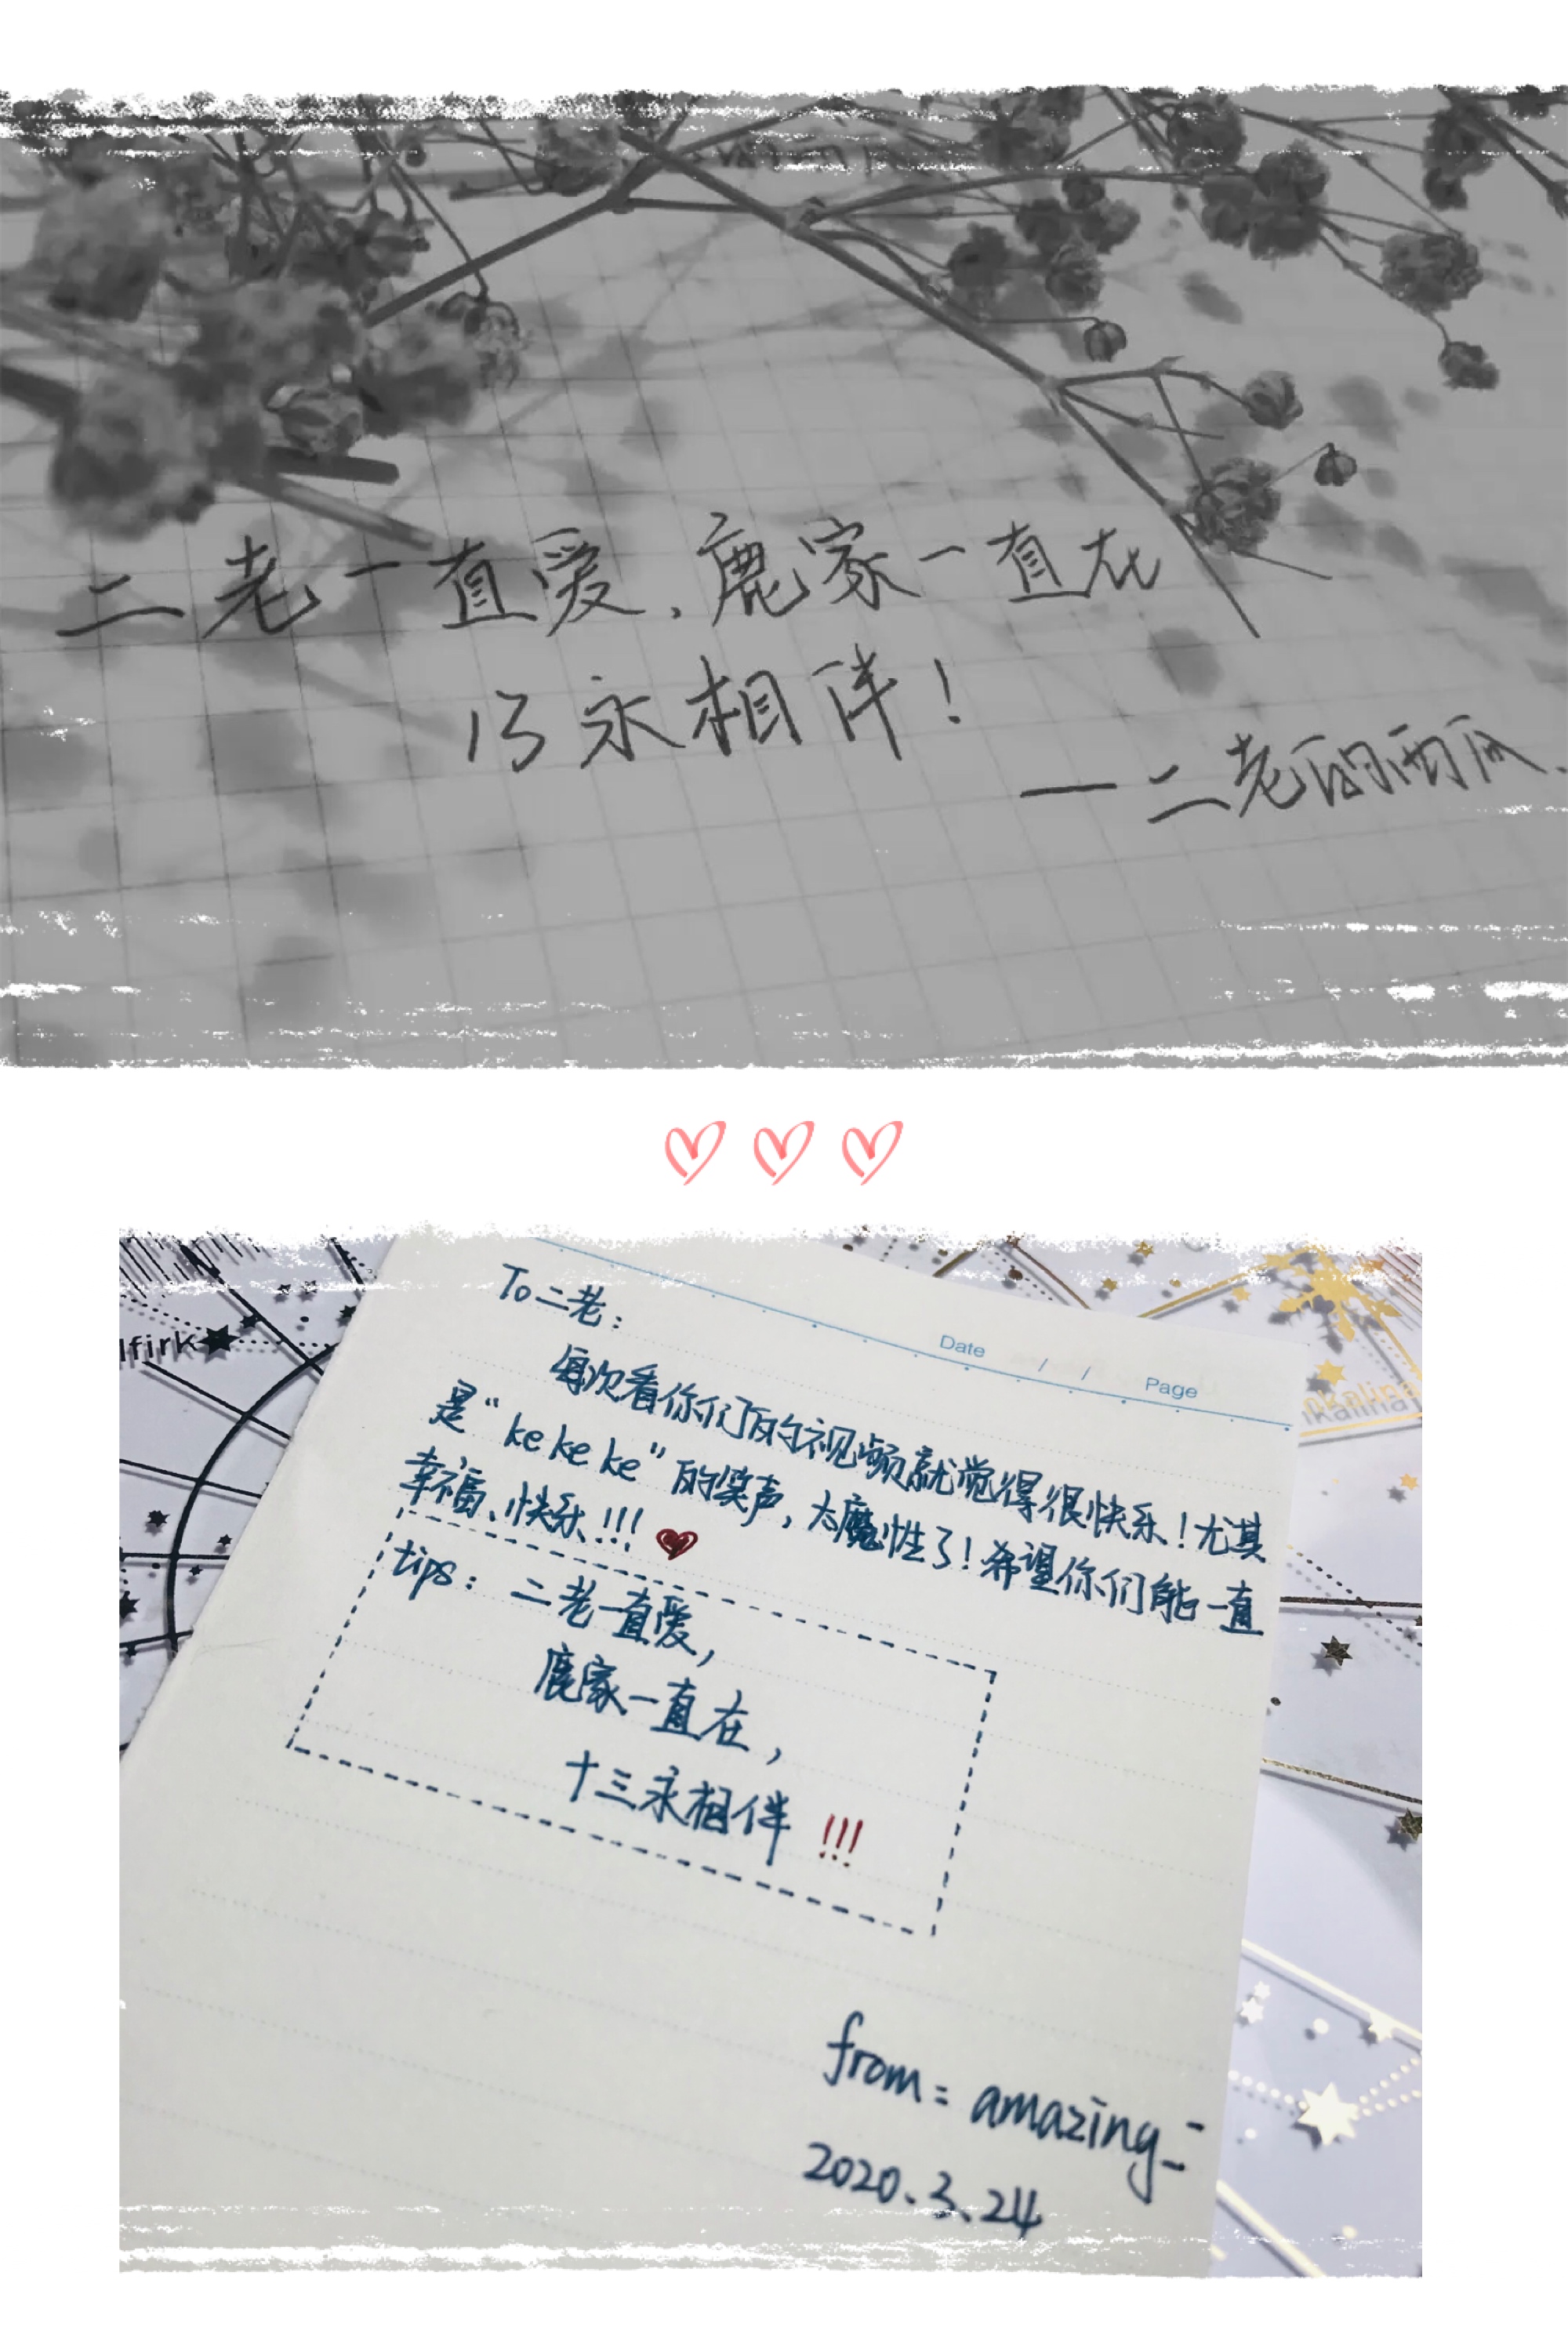 二老一直爱、鹿家一直在
13永相伴!
—二老的西瓜、
To二老:
Date / / Page
每次看你们的视频就觉得很快乐!尤其
是“ke ke ke”的笑声,太魔性了!希望你们能一直
幸福、快乐!!!
tips: 二老一直爱,
鹿家一直在,
十三永相伴!!!
from: amazing
2020.3.24